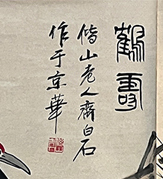 鶴壽
借山老人齊白石
作于京華